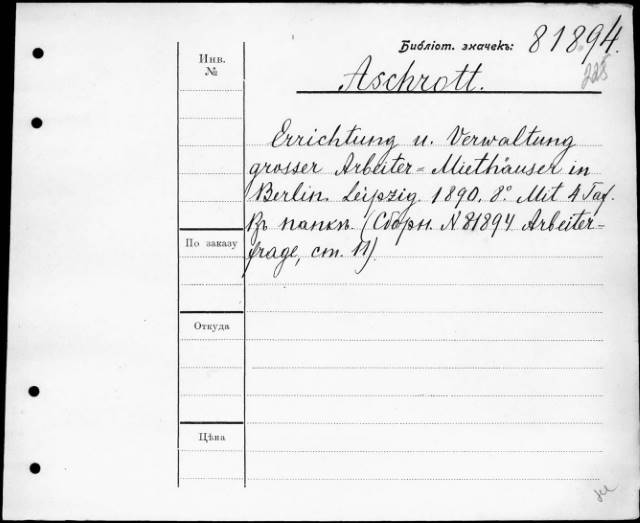 Библіот. значекъ: 81894.
225
Инв.
№
Aschrott.
Errichtung u. Verwaltung
grosser Arbeiter-Miethäuser in
Berlin. Leipzig. 1890. 8°. Mit 4 Taf.
Въ папкѣ. (Сборн. N 81894 Arbeiter-
frage, ст. 11).
По заказу
Откуда
Цѣна